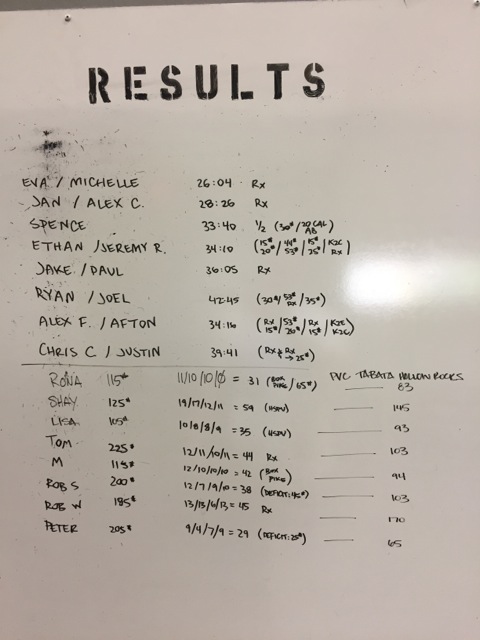 RESULTS
EVA / MICHELLE 26:04 Rx
JAN / ALEX C. 28:26 Rx
SPENCE 33:40 1/2 (30#/20 CAL AB)
ETHAN / JEREMY R. 34:10 (15# 20#/44# 53#/15# 25#/K2C Rx)
JAKE / PAUL 36:05 Rx
RYAN / JOEL 42:45 (30#/53# Rx/35#)
ALEX F. / AFTON 34:16 (Rx 15#/53# 20#/Rx 15#/K2E K2C)
CHRIS C / JUSTIN 39:41 (Rx & Rx → 25#)
PVC TABATA HOLLOW ROCKS
RONA 115# 11/10/10/0 = 31 (BOX PIKE/65#) 83
SHAY 125# 19/17/12/11 = 59 (HSPU) 145
LISA 105# 10/8/8/9 = 35 (HSPU) 93
TOM 225# 12/11/10/11 = 44 Rx 103
M 115# 12/10/10/10 = 42 (BOX PIKE) 94
ROB S 200# 12/7/9/10 = 38 (DEFICIT:45#) 103
ROB W 185# 13/13/6/13 = 45 Rx 170
PETER 205# 9/4/7/9 = 29 (DEFICIT:25#) 65